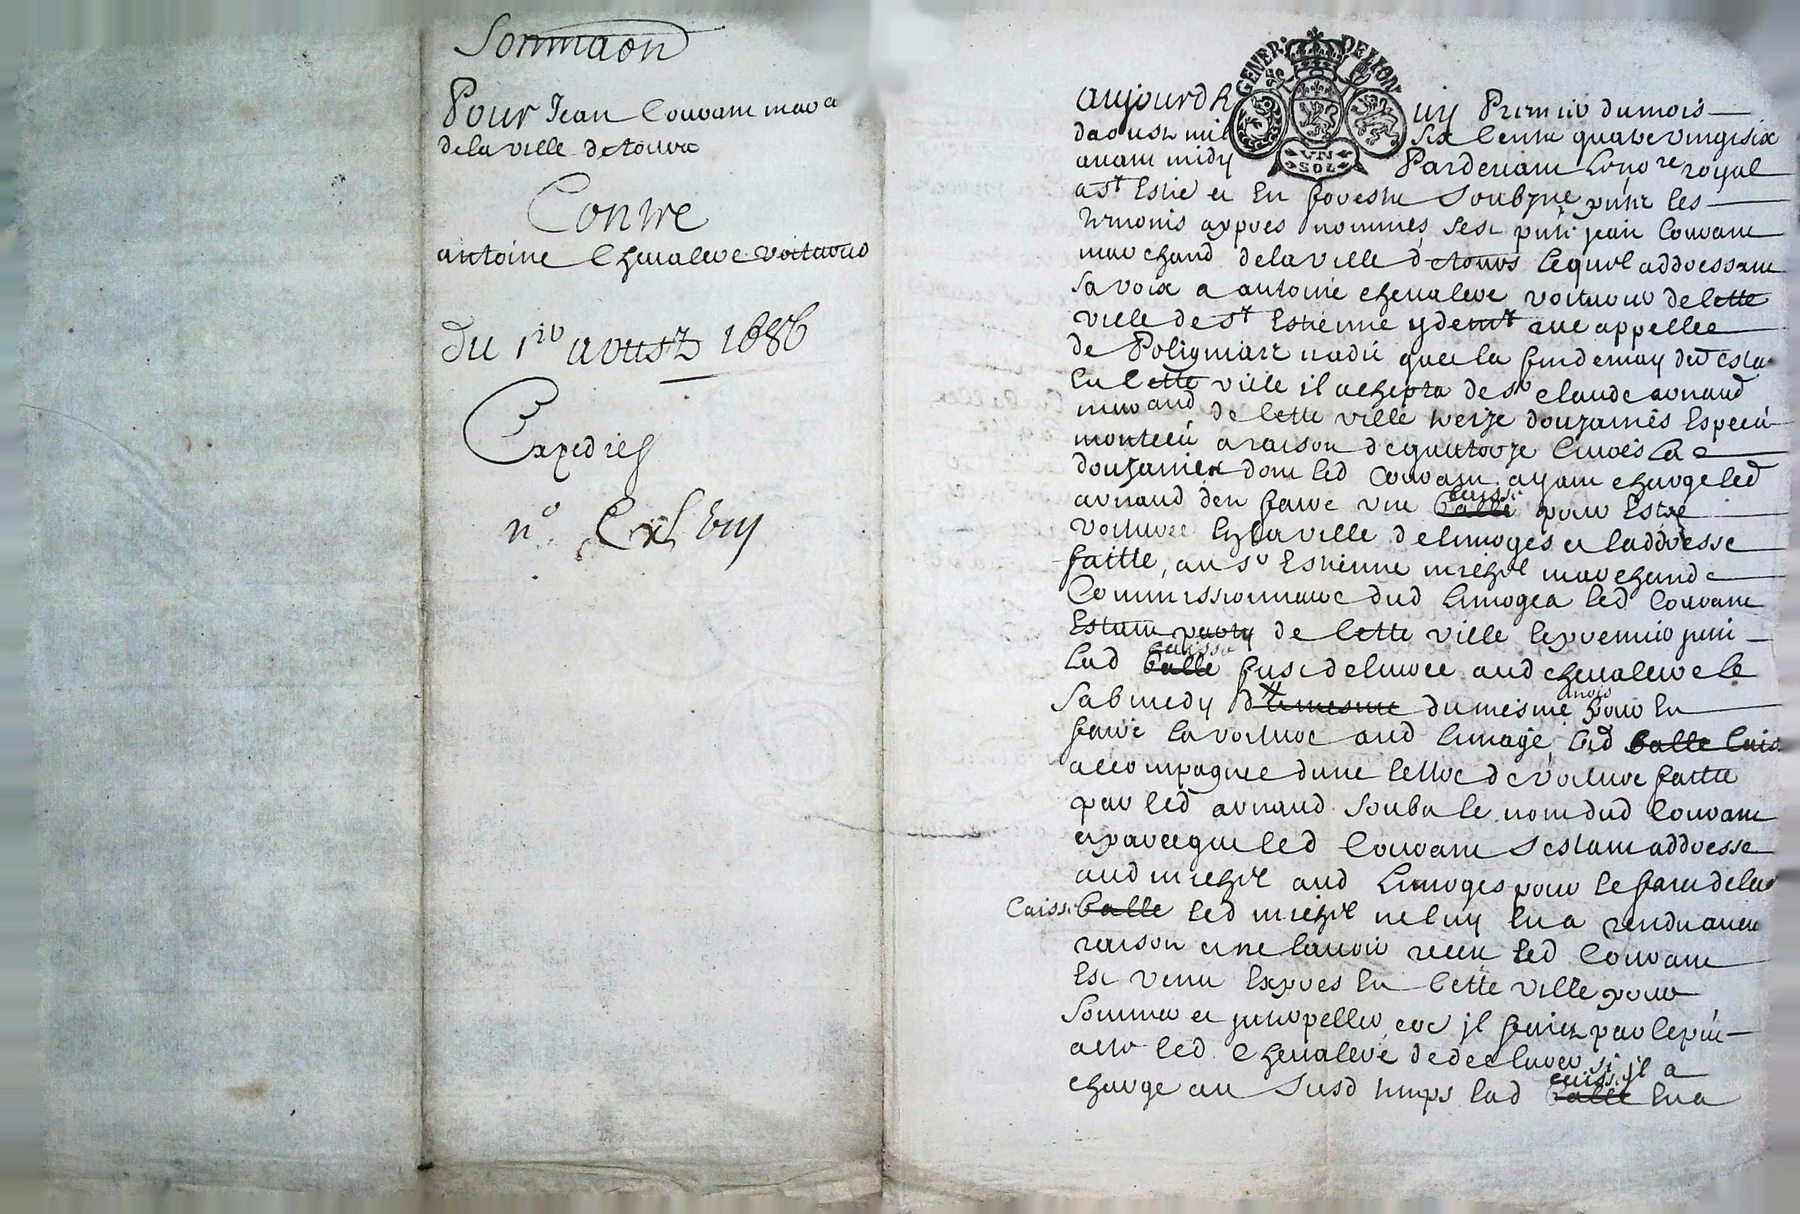 Sommaon
Pour Jean Couvam marcd
de la ville de tours
Contre
antoine Chevaleve voitureur
Du 1er aoust 1686
Expedieé
n°
GENER. DE LION
VN SOL
aujourdhuy Premier du mois
daoust mil six Cents quatre vingt six
avant midy Pardevant Le nore royal
a St Estie et En forestz Soubzne pnts les
tesmoins appres nommés sest pnté jean Couvam
marchand de la ville de tours lequel addressant
sa voix a antoine chevaleve voitureur de Cette
ville de St Estienne y demt rue appellee
de Polignais a dit que la fin de may der esta
En Cette ville il achepta de sr claude arnaud
marand de Cette ville treize douzaines
a raison de quatorze Livres La
douzaine dont led Couvam ayant charge led
arnaud den faire une balle caisse pour Estre
voituree En la ville de limoges et laddresse
faitte, au sr Estienne michel marchand
Commissionnaire dud limoges led Couvam
Estant party de Cette ville le premier juin
Lad balle caisse fust delivree aud chevaleve le
sabmedy du mesme mois pour En
faire la voiture aud limoge lad balle Caisse
accompagnee dune lettre de voiture faitte
par led arnaud soubz le nom dud Couvam
et parce que led Couvam sestant addresse
aud michel aud Limoges pour le fait de lad
Caisse balle led michel ne luy En a rendu aucune
raison et ne lavoir receu led Couvam
Est venu Expres En Cette ville pour
sommer et interpeller coe jl fait par le pnt
acte led chevaleve de declarer si jl a
charge au susd temps lad balle caisse En a